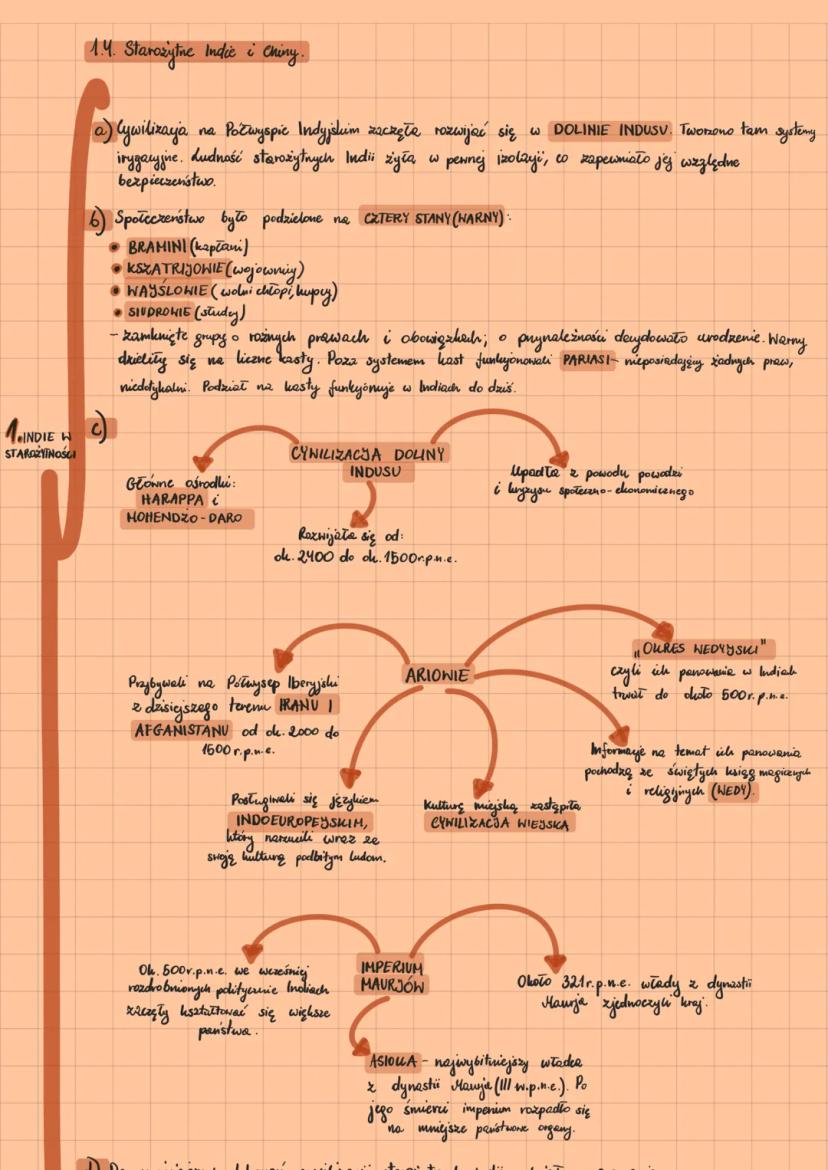 1.4. Starożytne Indie i Chiny.
a) Cywilizacja na Półwyspie Indyjskim zaczęła rozwijać się w DOLINIE INDUSU. Tworzono tam systemy
irygacyjne. Ludność starożytnych Indii żyła w pewnej izolacji, co zapewniało jej względne
bezpieczeństwo.
b) Społeczeństwo było podzielone na CZTERY STANY (WARNY):
• BRAMINI (kapłani)
• KSZATRIJOWIE (wojownicy)
• WAJŚLOWIE (wolni chłopi, kupcy)
• SIUDROWIE (słudzy)
- zamknięte grupy o rożnych prawach i obowiązkach; o przynależności decydowało urodzenie. Warny
dzieliły się na liczne kasty. Poza systemem kast funkcjonowali PARIASI - nieposiadający żadnych praw,
niedotykalni. Podział na kasty funkcjonuje w Indiach do dziś.
1. INDIE W
STAROŻYTNOŚCI
c)
CYWILIZACJA DOLINY
INDUSU
Główne ośrodki:
HARAPPA i
MOHENDŻO-DARO
Rozwijała się od:
ok. 2400 do ok. 1500r.p.n.e.
Upadła z powodu powodzi
i kryzysu społeczno-ekonomicznego
ARIOWIE
Przybywali na Półwysep Iberyjski
z dzisiejszego terenu IRANU I
AFGANISTANU od ok. 2000 do
1500r.p.n.e.
Posługiwali się językiem
INDOEUROPEJSKIM,
który narzucili wraz ze
swoją kulturą podbitym ludom.
Kulturę miejską zastąpiła
CYWILIZACJA WIEJSKA
Informacje na temat ich panowania
pochodzą ze świętych ksiąg magicznych
i religijnych (WEDY).
„OKRES WEDYJSKI"
czyli ich panowania w Indiach
trwał do około 500r.p.n.e.
IMPERIUM
MAURJÓW
Ok. 500r.p.n.e. we wcześniej
rozdrobnionych politycznie Indiach
zaczęły kształtować się większe
państwa.
ASIOKA - najwybitniejszy władca
z dynastii Maurja (III w.p.n.e.). Po
jego śmierci imperium rozpadło się
na mniejsze państwowe organy.
Około 321r.p.n.e. władcy z dynastii
Maurja zjednoczyli kraj.